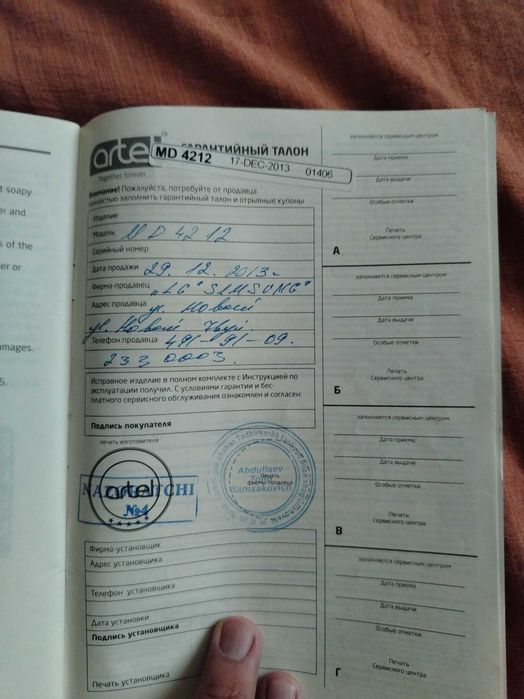 soapy
er and
s of the
er or
mages.
5.
artel
Together forever
ГАРАНТИЙНЫЙ ТАЛОН
MD 4212 17-DEC-2013 01406
Внимание! Пожалуйста, потребуйте от продавца
полностью заполнить гарантийный талон и отрывные купоны
Изделие
Модель MD 4212
Серийный номер
Дата продажи 29. 12. 2013
Фирма-продавец "LG" SAMSUNG"
Адрес продавца
ул. Навои
Телефон продавца 491-91-09.
233 0003
Исправное изделие в полном комплекте с Инструкцией по
эксплуатации получил. С условиями гарантии и бес-
платного сервисного обслуживания ознакомлен и согласен:
Подпись покупателя
печать изготовителя
artel
NAZORATCHI
№4
Abdullaev
Samsakovich
Печать
фирмы продавца
Фирма-установщик
Адрес установщика
Телефон установщика
Дата установки
Подпись установщика
Печать установщика
заполняется сервисным центром
Дата приема
Дата выдачи
Особые отметки
Печать
Сервисного центра
А
заполняется сервисным центром
Дата приема
Дата выдачи
Особые отметки
Печать
Сервисного центра
Б
заполняется сервисным центром
Дата приема
Дата выдачи
Особые отметки
Печать
Сервисного центра
В
заполняется сервисным центром
Дата приема
Дата выдачи
Особые отметки
Печать
Сервисного центра
Г